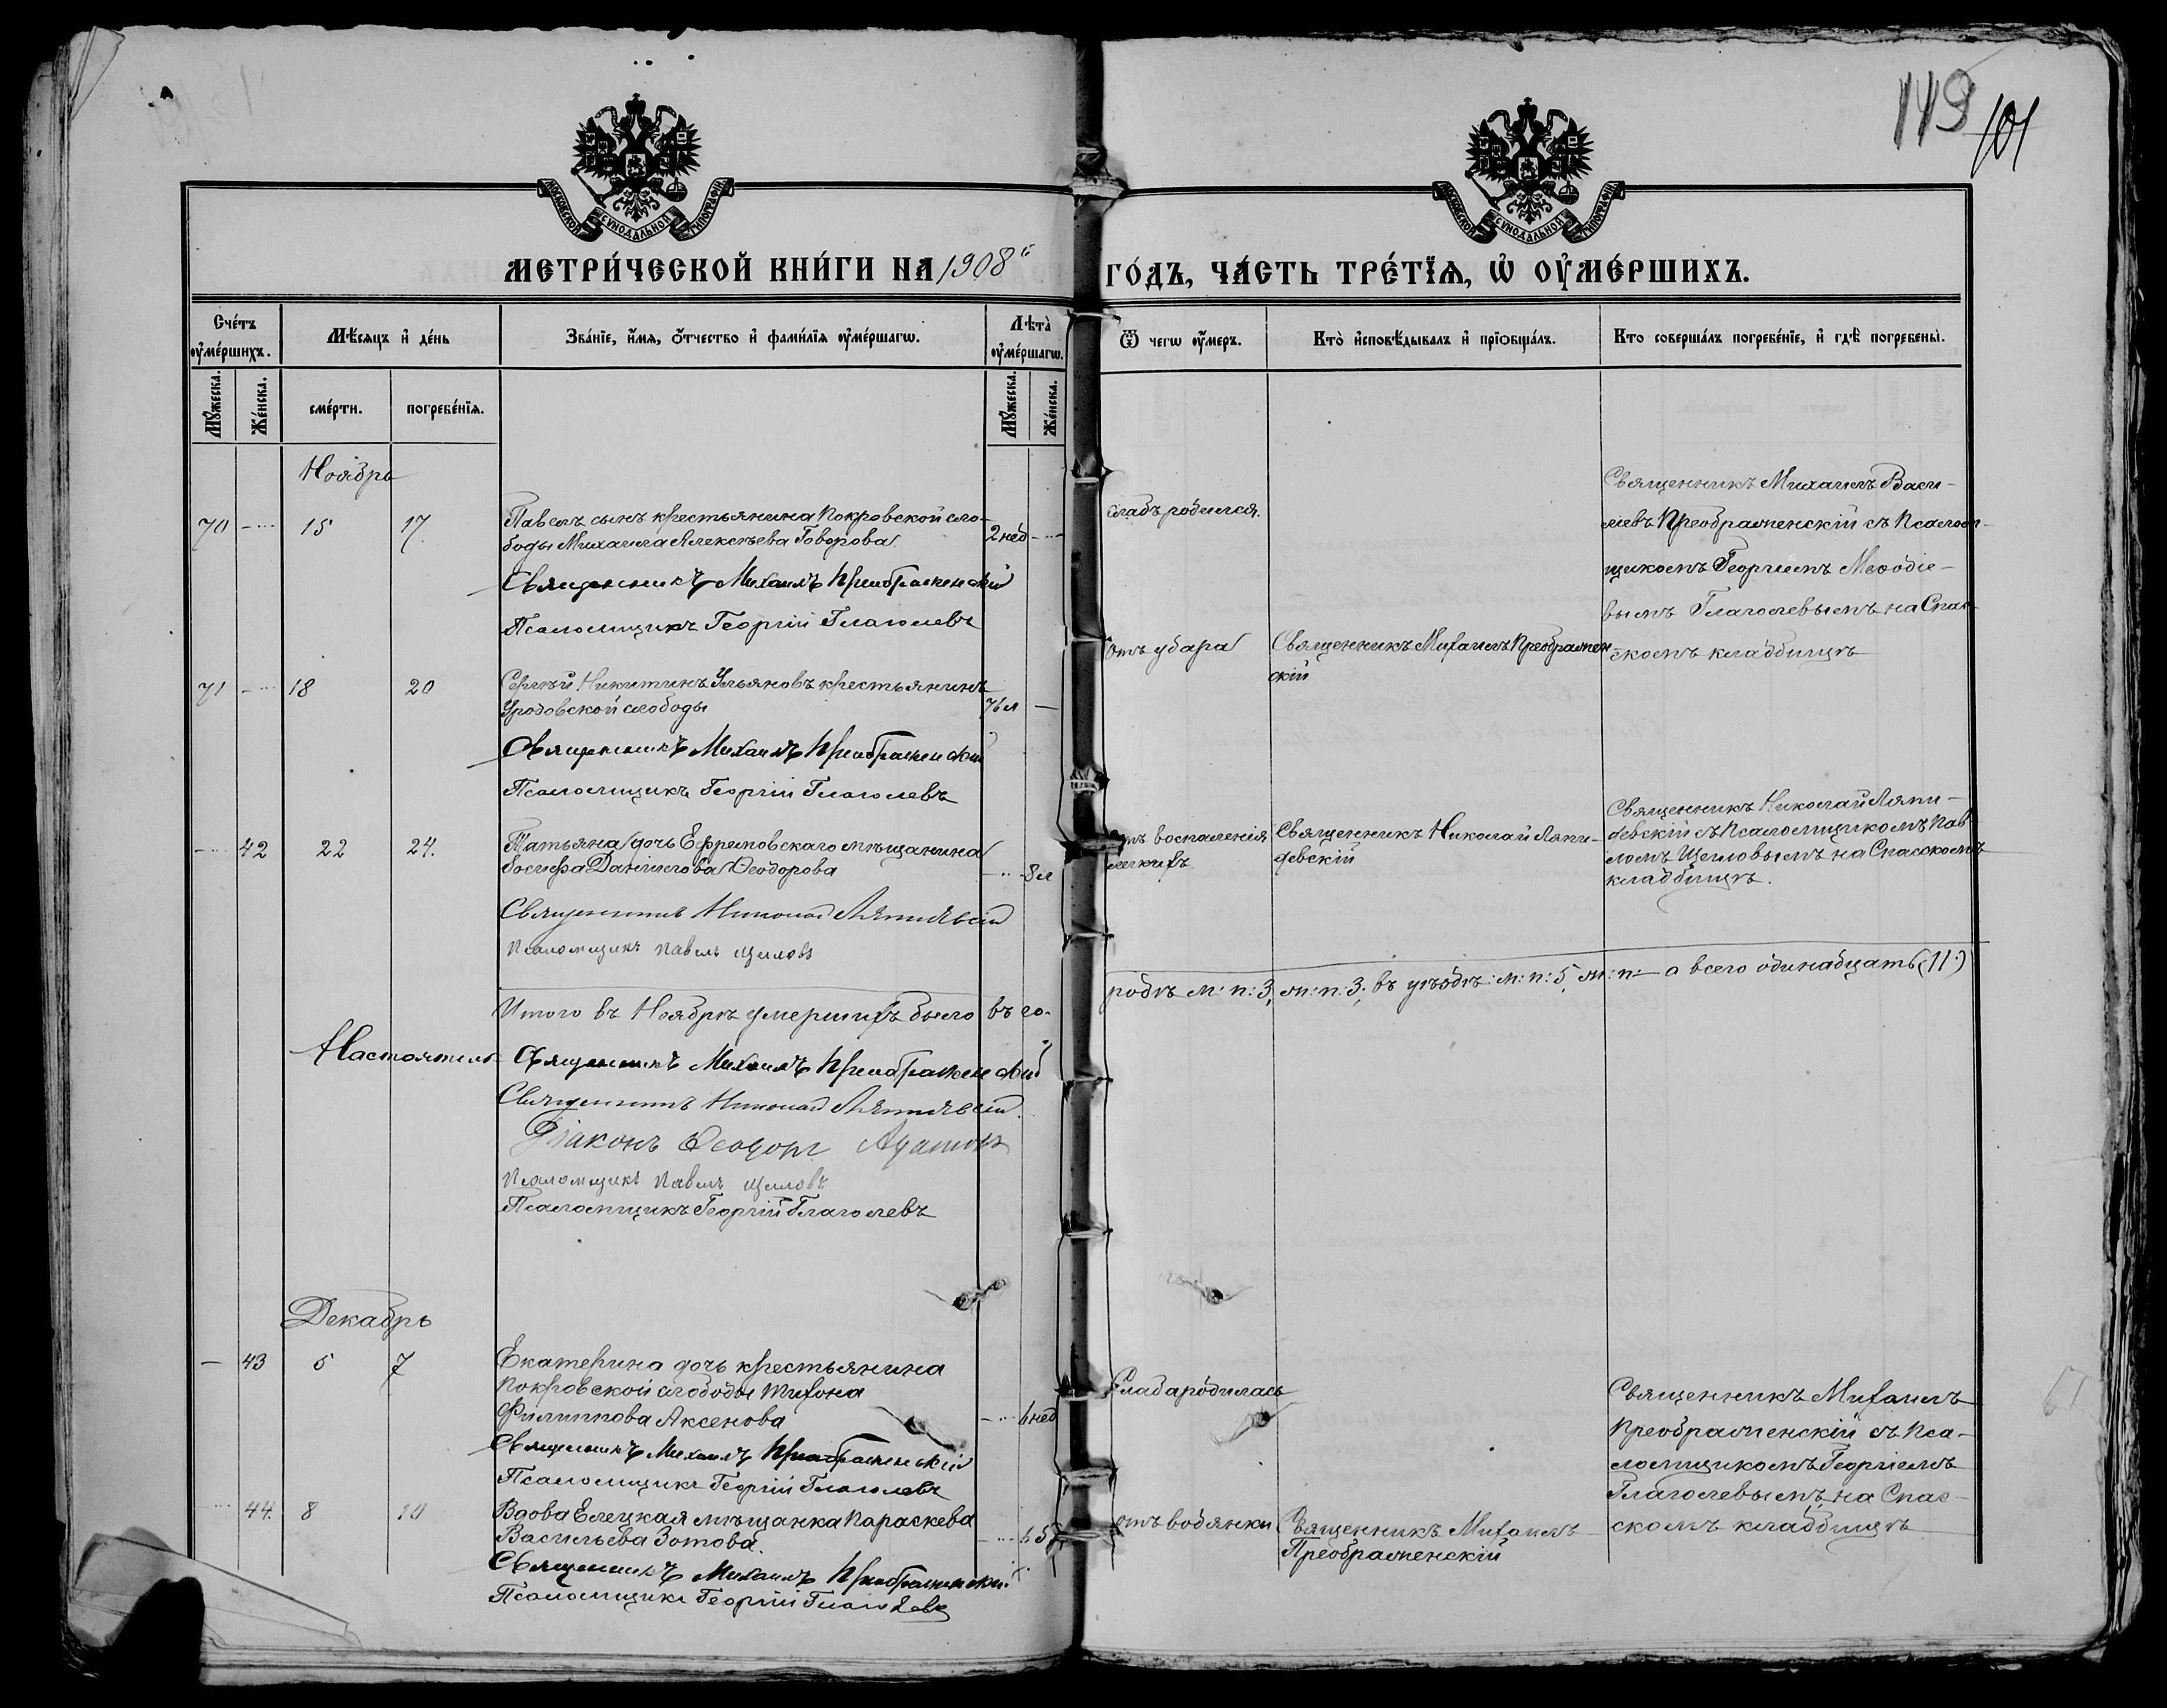 149 101
МОСКОВСКОЙ СѴНОДАЛЬНОЙ ТИПОГРАФІИ
МОСКОВСКОЙ СѴНОДАЛЬНОЙ ТИПОГРАФІИ
МЕТРИ́ЧЕСКОЙ КНИ́ГИ НА 1908й ГО́ДЪ, ЧА́СТЬ ТРЕ́ТЇѦ, Ѡ҆ ОУ҆МЕ́РШИХЪ.
Сче́тъ оу҆ме́ршихъ.
Мѣ́сяцъ и҆ де́нь
Зва́нїе, и҆́мѧ, ѻ҆́тчество и҆ фами́лїѧ оу҆ме́ршагѡ.
Лѣта̀ оу҆ме́ршагѡ.
Ѿ чегѡ оу҆́меръ.
Кто̀ и҆сповѣ́дывалъ и҆ прїѻбща́лъ.
Кто соверша́лъ погребе́нїе, и҆ гдѣ̀ погребены̀.
Мꙋ́жеска.
Же́нска.
сме́рти.
погребе́нїѧ.
Мꙋ́жеска.
Же́нска.
Ноябрь
70 — 15 17.
Павелъ сынъ крестьянина Покровской сло-
боды Михаила Алексѣева Говорова
2 нед —
Священникъ Михаилъ Преображенскій
Псаломщикъ Георгій Глаголевъ
слабъ родился.
Священникъ Михаилъ Васи-
льевъ Преображенскій съ Псалом-
щикомъ Георгіемъ Меѳодіе-
вымъ Глаголевымъ на Спас-
скомъ кладбищѣ
71 — 18 20
Сергѣй Никитинъ Ульяновъ крестьянинъ
Уродовской слободы
76 л —
Священникъ Михаилъ Преображенскій
Псаломщикъ Георгій Глаголевъ
отъ удара
Священникъ Михаилъ Преображен
скій
— 42 22 24.
Татьяна дочь Ефремовскаго мѣщанина
Іосифа Даніилова Ѳеодорова
— 8 л
Священникъ Николай
Псаломщикъ Павелъ Щегловъ
отъ воспаленія
легкихъ
Священникъ Николай Ляпи-
девскій
Священникъ Николай Ляпи-
девскій съ Псаломщикомъ Пав
ломъ Щегловымъ на Спасскомъ
кладбищѣ.
Итого въ Ноябрѣ умершихъ было въ го-
родѣ м: п: 3, ж: п: 3; въ уѣздѣ: м: п: 5, ж: п: — а всего одинадцать (11)
Настоятель Священникъ Михаилъ Преображенскій
Священникъ Николай
Діаконъ Ѳеодоръ
Псаломщикъ Павелъ Щегловъ
Псаломщикъ Георгій Глаголевъ
Декабрь
— 43 5 7
Екатерина дочь крестьянина
Покровской слободы Тихона
Филиппова Аксенова
— 6 нед
Священникъ Михаилъ Преображенскій
Псаломщикъ Георгій Глаголевъ
Слаба родилась
Священникъ Михаилъ
Преображенскій съ Пса-
ломщикомъ Георгіемъ
Глаголевымъ на Спас-
скомъ кладбищѣ
44. 8 10
Вдова Елецкая мѣщанка Параскева
Васильева Зотова.
— 65
Священникъ Михаилъ Преображенскій
Псаломщикъ Георгій Глаголевъ
отъ водянки
Священникъ Михаилъ
Преображенскій